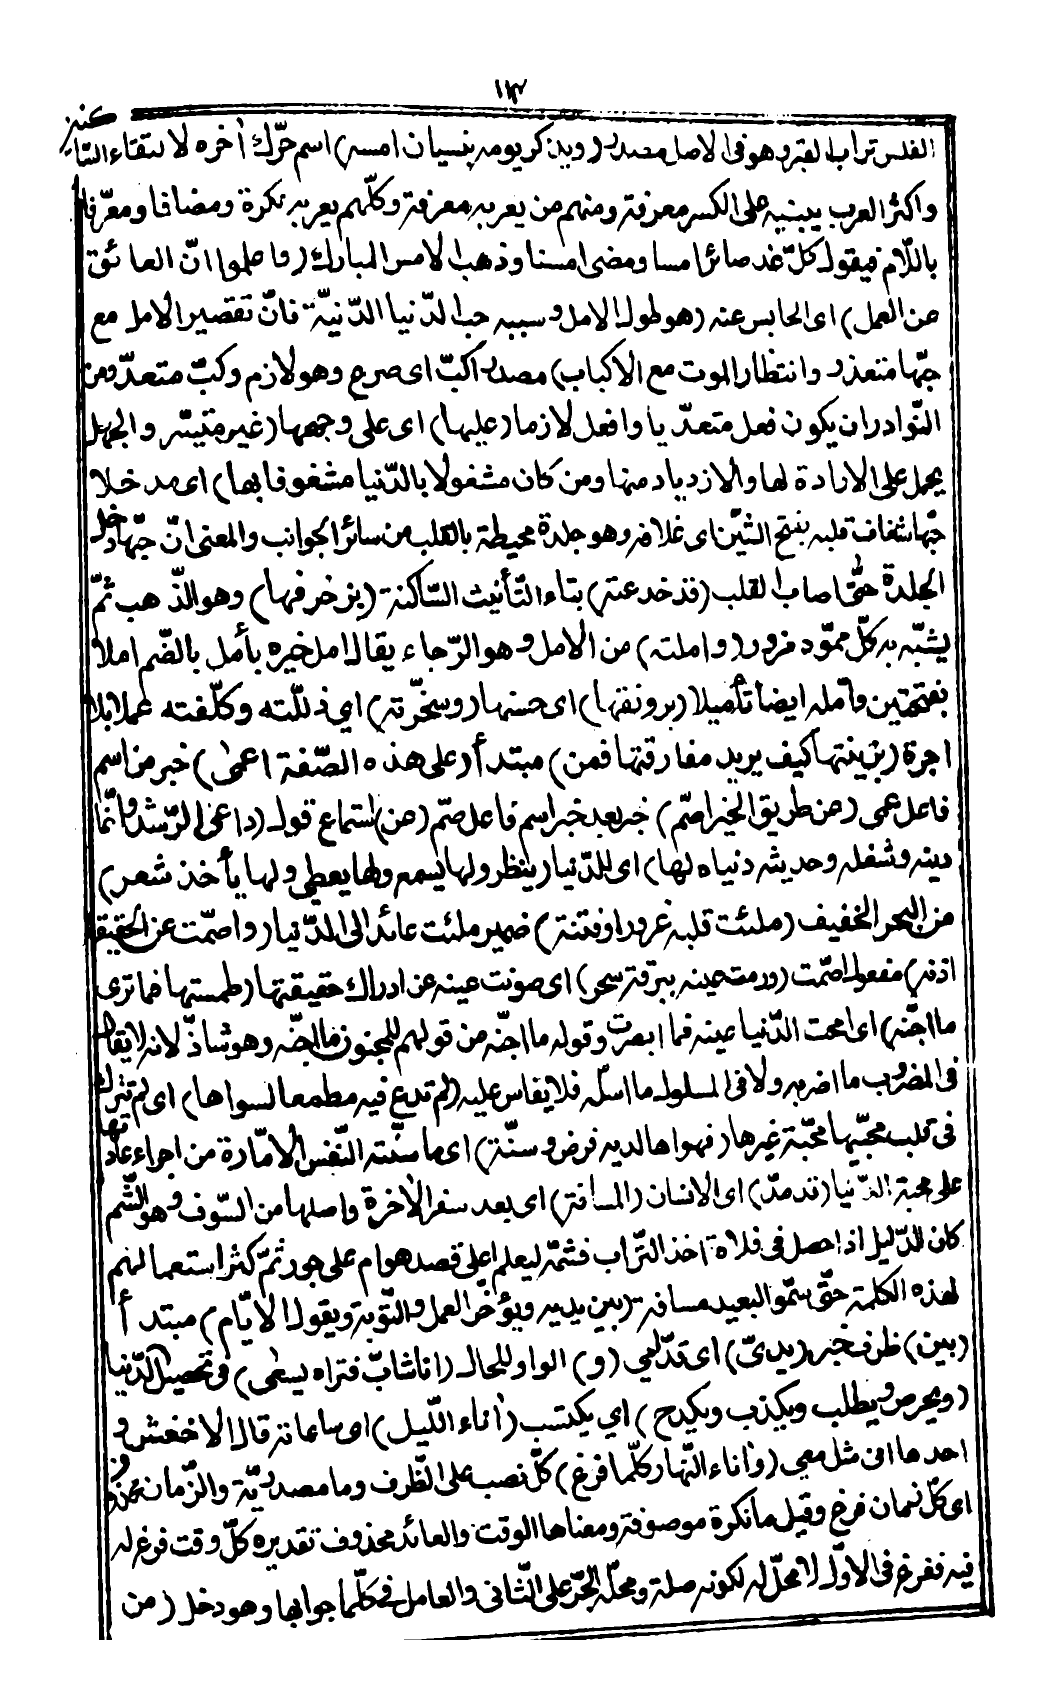 ١١٣
كنيز
الفلس تراب القبر وهو فى الاصل مصدر (ويذكر يومه بنسيان امسه) اسم حرّك آخره لالتقاء السّا
واكثر العرب يبنيه على الكسر معرفة ومنهم من يعربه معرفة وكلّهم يعربه نكرة ومضافا ومعرّفا
باللّام فيقول كلّ غد صائر امسا ومضى امسنا وذهب الامس المبارك (فاعلموا انّ العائق
عن العمل) اى الحابس عنه (هو طول الامل و سببه حب الدّنيا الدّنيّة فانّ تقصير الامل مع
حبّها متعذر وانتظار الموت مع الاكباب) مصدر اكبّ اى صرع وهو لازم وكبّ متعدّ ومن
النّوادر ان يكون فعل متعدّيا وافعل لازما (عليها) اى على وجهها (غير متيسّر والجهل
يحمل على الارادة لها والازدياد منها ومن كان مشغولا بالدّنيا مشغوفا بها) اى مدخلا
حبّها شغاف قلبه بفتح الشّين اى غلافه وهو جلدة محيطة بالقلب من سائر الجوانب والمعنى انّ حبّها دخل
الجلدة حتّى اصاب القلب (قد خدعته) بتاء التّأنيث السّاكنة (بزخرفها) وهو الذّهب ثمّ
يشبّه به كلّ مموّه مزوّر (واملته) من الامل و هو الرّجاء يقال امل خيره يأمل بالضّم املا
بفتحتين وأمله ايضا تأميلا (برونقها) اى حسنها (وسخّرته) اي ذلّلته وكلّفته عملا بلا
اجرة (بزينتها كيف يريد مفارقتها فمن) مبتدأ (على هذه الصّفة اعمى) خبر من اسم
فاعل عمى (عن طريق الخير اصّم) خبر بعد خبر اسم فاعل صمّ (عن) استماع قول (داعى الرّشد وانّما
دينه وشغله وحديثه دنياه لها) اى للدّنيا (ينظر ولها يسمع ولها يعطى ولها يأخذ شعر)
من البحر الخفيف (ملئت قلبه غرورا وفتنة) ضمير ملئت عائد الى الدّنيا (واصّمت عن الحقيقة
اذنه) مفعول اصّمت (ورمت عينه ببرقة سحر) اى صونت عينه عن ادراك حقيقتها (طمستها فما ترى
ما اجنّه) اى امحت الدّنيا عينه فما ابصرت وقوله ما اجنّه من قولهم للمجنون ما اجنّه وهو شاذّ لانه لا يقال
فى المضروب ما اضربه ولا فى المسلول ما اسلّه فلا يقاس عليه (لم تدع فيه مطمعا لسواها) اى لم تترك
فى قلب محبّيها محبّة غيرها (فهواها لديه فرض و سنّة) اى ما سنّته النّفس الامّارة من اجراء عاداتها
على محبة الدّنيا (قد مدّ) اى الانسان (المسافة) اى بعد سفر الآخرة واصلها من السّوف و هو الشّم
كان الدّليل اذا حصل فى فلاة اخذ التّراب فشمّه ليعلم اعلى قصد هو ام على جور ثمّ كثر استعمالهم
لهذه الكلمة حتّى سمّوا البعيد مسافة (بين يديه ويؤخّر العمل والتّوبة ويقول الايّام) مبتدأ
(بين) ظرف خبره (يدىّ) اى قدّامى (و) الواو للحال (انا شابّ فتراه يسعى) فى تحصيل الدّنيا
(ويحرص ويطلب ويكذب ويكدح) اي يكتسب (آناء اللّيل) اى ساعاته قال الاخفش و
احدها انى مثل معى (وآناء النّهار كلّما فرغ) كلّ نصب على الظّرف وما مصدريّة والزّمان محذوف
اى كلّ زمان فرغ وقيل ما نكرة موصوفة ومعناها الوقت والعائد محذوف تقديره كلّ وقت فرغ له
فيه ففرغ فى الاوّل لا محلّ له لكونه صلة ومحلّه الجرّ على الثّانى والعامل فى كلّما جوابها وهو دخل (من